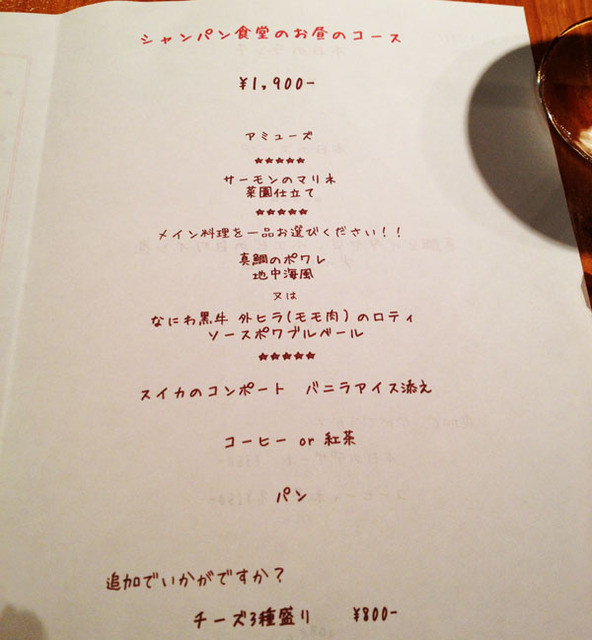 シャンパン食堂のお昼のコース
¥1,900-
アミューズ
★★★★★
サーモンのマリネ
菜園仕立て
★★★★★
メイン料理を一品お選びください！！
真鯛のポワレ
地中海風
又は
なにわ黒牛 外ヒラ(モモ肉)のロティ
ソースポワブルベール
★★★★★
スイカのコンポート バニラアイス添え
コーヒー or 紅茶
パン
追加でいかがですか？
チーズ3種盛り ¥800-